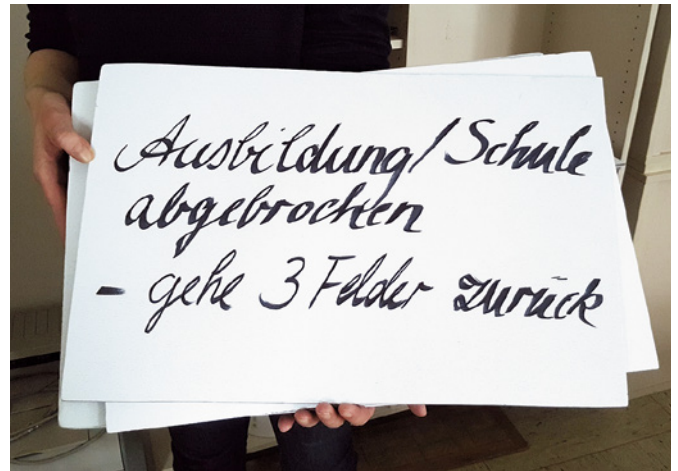 Ausbildung/Schule
abgebrochen
- gehe 3 Felder zurück